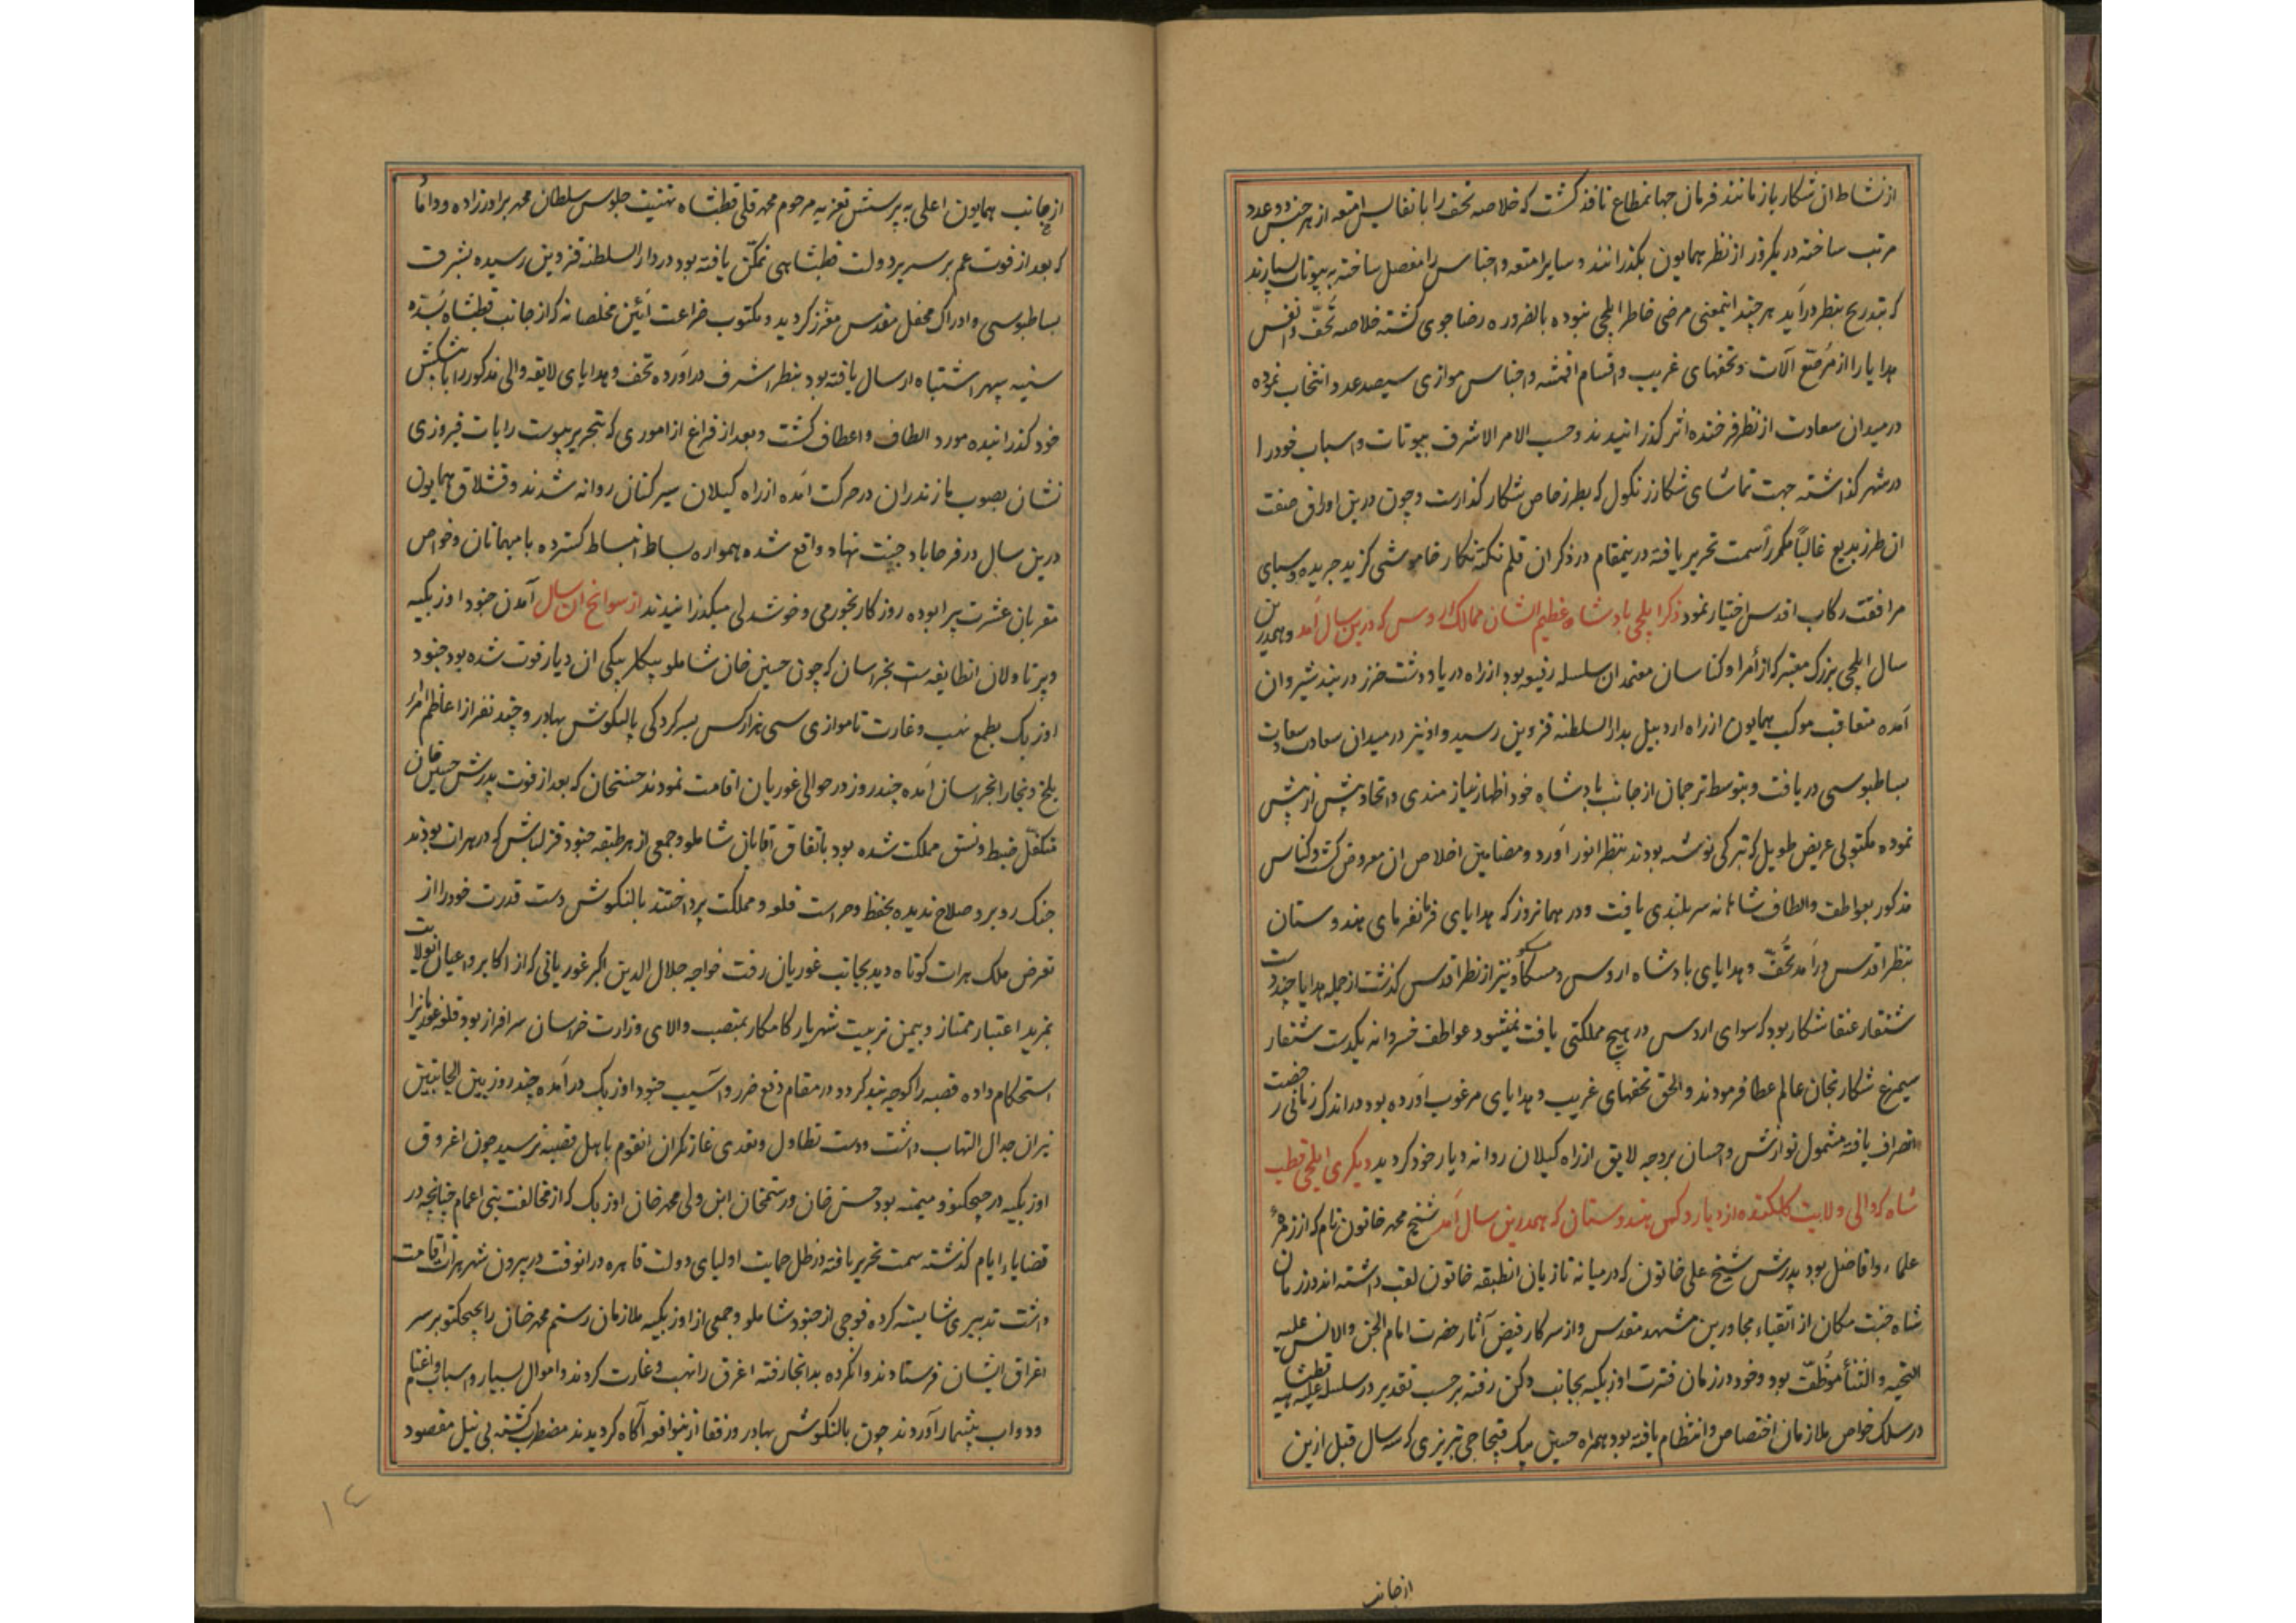 از نشاط ان شکار باز ماندند فرمان جهانمطاع نافذ کشت که خلاصه تحف را با نفایس امتعه از هر جنس دو عدد
مرتب ساخته در یکروز از نظر همایون بکذرانند و سایر امتعه و اجناس را مفصل ساخته به بیوتات بسپارند
که بتدریج بنظر درآید هر چند اینمعنی مرضی خاطر ایلچی نبوده بالضروره رضاجوی کشته خلاصه تُحَف و انفس
هدایا را از مُرصّع آلات و تحفهای غریب و اقسام اقمشه و اجناس موازی سیصد عدد انتخاب نموده
در میدان سعادت از نظر فرخنده اثر کذرانیدند و حسب الامر الاشرف بیوتات و اسباب خود را
در شهر کذاشته جهت تماشای شکار زنکول که بطرز خاص شکار کذارست و چون درین اوراق صفت
ان طرز بدیع غالباً مکرر أسمت تحریر یافته درینمقام در ذکر ان قلم نکته نکار خاموشی کزید جریده و سبای
مرافقت رکاب اقدس اختیار نمود ذکر ایلچی پادشاه عظیم الشان ممالک اروس که درین سال آمد و همدرین
سال ایلچی بزرک معتبر که از أمرا و کناسان معتمد ان سلسله رفیعه بود از راه دریا و دشت خزر در بند شیروان
آمده متعاقب موکب همایون از راه اردبیل بدار السلطنه قزوین رسید و او نیز در میدان سعادت سعادت
بساطبوسی دریافت و بتوسط ترجمان از جانب پادشاه خود اظهار نیازمندی و اتحاد پیش از پیش
نموده مکتوبی عریض طویل که ترکی نوشته بودند بنظر انور آورد و مضامین اخلاص ان معروض کشت و کناس
مذکور بعواطف و الطاف شاهانه سربلندی یافت و در همانروز که هدایای فرمانفرمای هندوستان
بنظر اقدس درآمد تُحَف و هدایای پادشاه اروس و مسکو نیز از نظر اقدس کذشت از جمله هدایا چند دست
شنقار عنقا شکار بود که سوای اروس در هیچ مملکتی یافت نمیشود عواطف خسروانه یکدست شنقار
سیمرغ شکار بخان عالم عطا فرمودند و الحق تحفهای غریب و هدایای مرغوب آورده بود در اندک زمانی رخصت
انصراف یافته مشمول نوازش و احسان بر وجه لایق از راه کیلان روانه دیار خود کردید دیکری ایلچی قطب
شاه که والی ولایت کلکنده از دیار دکن هندوستان که همدرین سال آمد شیخ محمد خاتون نام که از زمرهٔ
علماء و افاضل بود پدرش شیخ علی خاتون که در میانه تازیان انطبقه خاتون لقب داشته اند در زمان
شاه جنت مکان از اتقیاء مجاورین مشهد مقدس و از سرکار فیض آثار حضرت امام الجن و الانس علیه
التحیه و الثنأ مُوظّف بود و خود در زمان فترت اوزبکیه بجانب دکن رفته بر حسب تقدیر در سلسله علیه قطبشاهیه
در سلک خواص ملازمان اختصاص و انتظام یافته بود همراه حسین بیک قبجاجی تبریزی که سه سال قبل ازین
از جانب
از جانب همایون اعلی به پرسش تعزیه مرحوم محمد قلی قطبشاه و تهنیت جلوس سلطان محمد برادرزاده و داماد
که بعد از فوت عم بر سریر دولت قطبشاهی تمکّن یافته بود در دار السلطنه قزوین رسیده بشرف
بساطبوسی و ادراک محفل مقدس معزّز کردید و مکتوب ضراعت آئین مخلصانه که از جانب قطبشاه بسدّه
سنیه سپهر اشتباه ارسال یافته بود بنظر اشرف درآورده تحف و هدایای لایقه والی مذکور را با پیشکش
خود کذرانیده مورد الطاف و اعطاف کشت و بعد از فراغ از اموری که بتحریر پیوست رایات فیروزی
نشان بصوب مازندران در حرکت آمده از راه کیلان سیرکنان روانه شدند و قشلاق همایون
درین سال در فرحاباد جنت نهاد واقع شده همواره بساط انبساط کسترده با میهمانان و خواص
مقربان عشرت پیرا بوده روزکار بخرمی و خوشدلی میکذرانیدند از سوانح ان سال آمدن جنود اوزبکیه
و پرتاولان انطایفه ست بخراسان که چون حسین خان شاملو بیکلربیکی ان دیار فوت شده بود جنود
اوزبک بطمع نهب و غارت تا موازی سی هزار کس بسرکردکی یالنکوش بهادر و چند نفر از اعاظم امراء
بلخ و بخارا بخراسان آمده چند روز در حوالی غوریان اقامت نمودند حسنخان که بعد از فوت پدرش حسین خان
متکفل ضبط و نسق مملکت شده بود باتفاق آقایان شاملو و جمعی از هر طبقه جنود قزلباش که در هرات بودند
جنک روبرو صلاح ندیده بحفظ و حراست قلعه و مملکت پرداختند یالنکوش دست قدرت خود را از
تعرض ملک هرات کوتاه دید بجانب غوریان رفت خواجه جلال الدین اکبر غوریانی که از اکابر و اعیان انولایت
بمزید اعتبار ممتاز و بیمن تربیت شهریار کامکار بمنصب والای وزارت خراسان سرافراز بود قلعه غوریانرا
استحکام داده قصبه را کوچه بند کرد و در مقام دفع ضرر و آسیب جنود اوزبک درآمده چند روز بین الجانبین
نیران جدال التهاب داشت و دست تطاول و تعدی غارتکران انقوم باهل قصبه نرسید چون اغروق
اوزبکیه در چیچکتو و میمنه بود حسن خان و رستمخان ابن ولی محمد خان اوزبک که از مخالفت بنی اعمام چنانچه در
قضایاء ایام کذشته سمت تحریر یافته در ظل حمایت اولیای دولت قاهره در انوقت در بیرون شهر هرات اقامت
داشت تدبیری شایسته کرده فوجی از جنود شاملو و جمعی از اوزبکیه ملازمان رستم محمد خان را بچیچکتو بر سر
اغراق ایشان فرستادند و انکروه بدانجا رفته اغرق را نهب و غارت کردند و اموال بسیار و اسباب و اغنام
و دواب بیشمار آوردند چون یالنکوش بهادر و رفقا ازینواقعه آکاه کردیدند مضطرب کشته بی نیل مقصود
۱۴